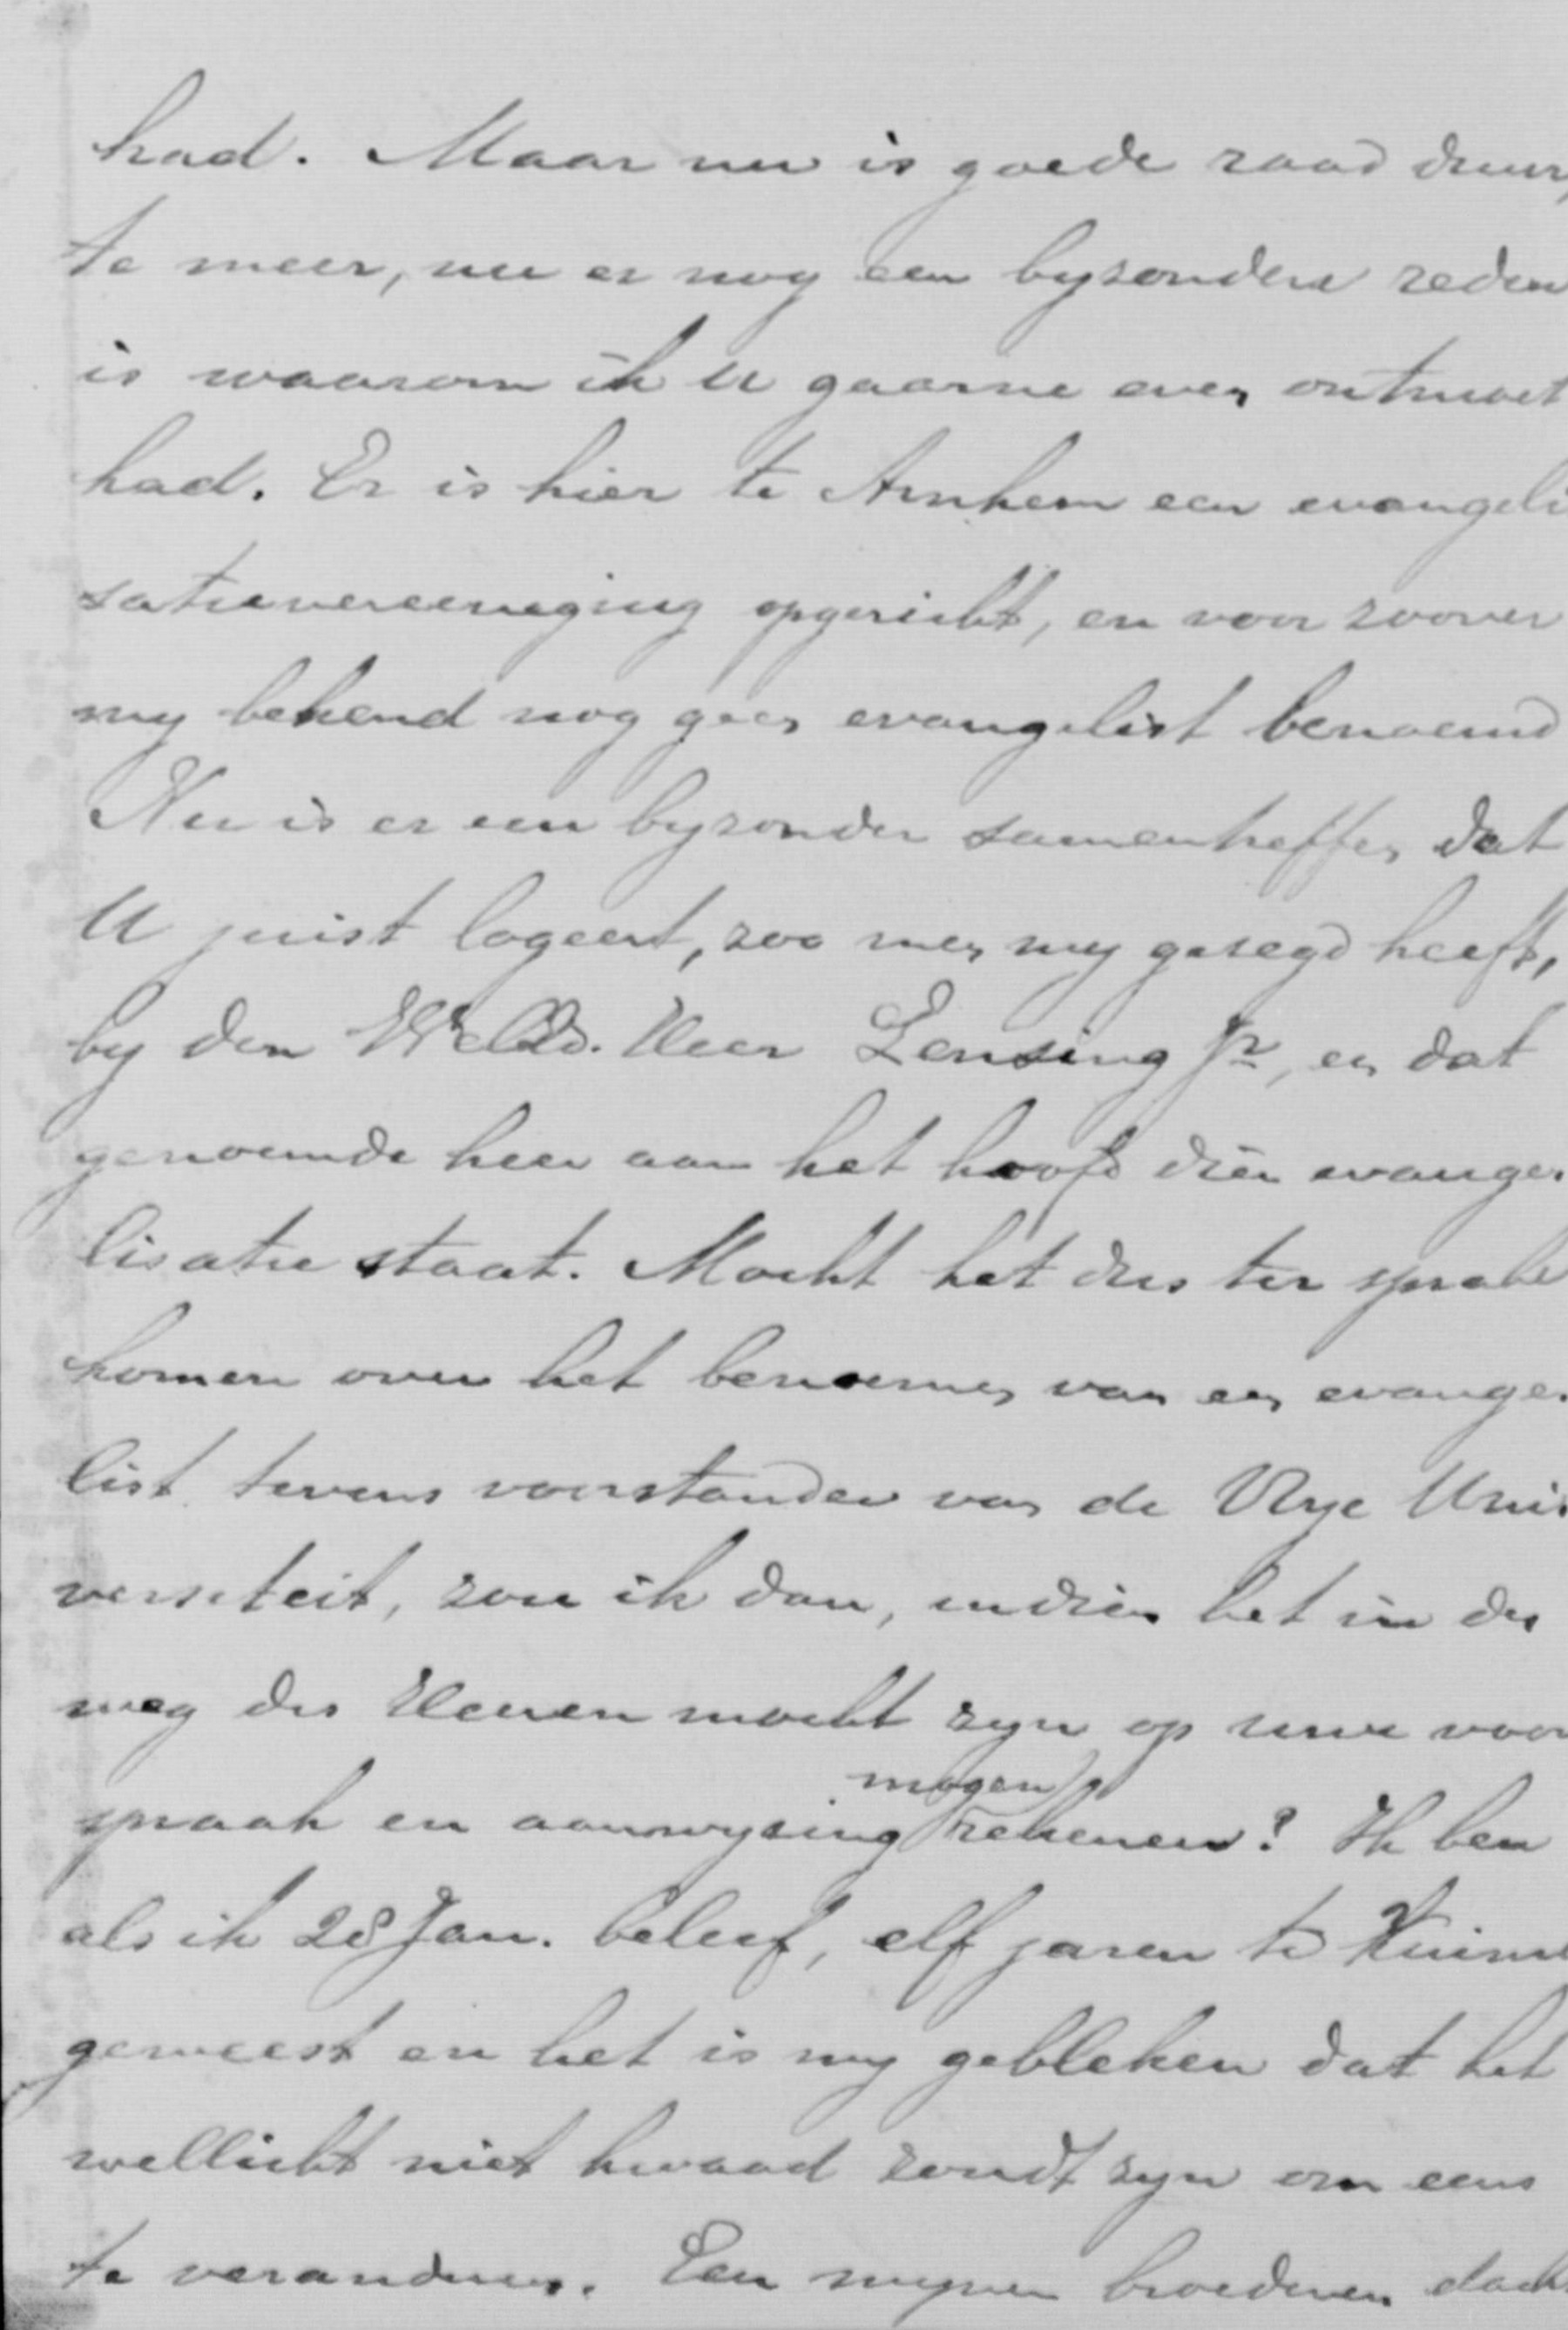 had. Maar nu is goede raad duur,
te meer, nu er nog een byzondere reden
is waarom ik U gaarne even ontmoet
had. Er is hier te Arnhem een evangeli
satievereeniging opgericht, en voor zoover
my bekend nog geen evangelist benoemd
Nu is er een byzonder samentreffen dat
U juist logeert, zoo men my gezegd heeft,
by den WelEd. Heer Lensing Jr, en dat
genoemde heer aan het hoofd dier evange-
lisatie staat. Mocht het dus ter sprake
komen over het benoemen van een evange-
list tevens voorstander van de Vrye Uni-
versiteit, zou ik dan, indien het in den
weg des Heeren mocht zyn op uwe voor
mogen
spraak en aanwyzing rekenen? Ik ben
als ik 28 Jan. beleef, elf jaren te
geweest en het is my gebleken dat het
wellicht niet kwaad zoudt zyn om eens
te veranderen. Een mynen broederen dacht